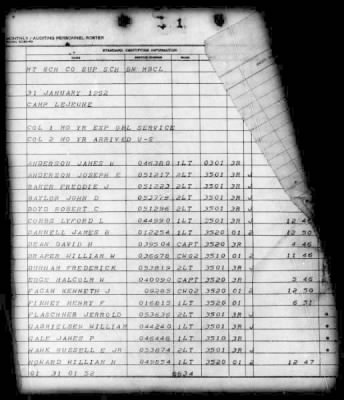 1
MONTHLY AUDITING PERSONNEL ROSTER
STANDARD CERTIFYING INFORMATION
MT SCH CO SUP SCH BN MBCL
31 JANUARY 1952
CAMP LEJEUNE
COL 1 MO YR EXP OBL SERVICE
COL 2 MO YR ARRIVED U-S
ANDERSON JAMES W 046380 1LT 0301 3R
ANDERSON JOSEPH E 051217 2LT 3501 3R J
BAKER FREDDIE J 051223 2LT 3501 3R J
BAYLOR JOHN D 052779 2LT 3501 3R J
BOYD ROBERT C 051296 2LT 3501 3R J
COBBS LYFORD L 044990 1LT 3501 3R J 12 48
DARNELL JAMES B 012254 1LT 3520 01 2 12 50
DEAN DAVID H 039504 CAPT 3520 3R 4 46
DRAPER WILLIAM W 036678 CWO2 3510 01 2 11 46
DURHAM FREDERICK 053819 2LT 3501 3R J
EDGE MALCOLM W 040090 CAPT 3520 3R 3 46
FAGAN KENNETH J 09285 CWO2 3520 01 2 12 50
FINNEY HENRY F 016815 1LT 3520 01 6 51
FLASCHNER JERROLD 053636 2LT 3501 3R J *
GABRIELSEN WILLIAM 044240 1LT 3501 3R J *
GALE JAMES P 046446 1LT 3510 3R J *
HANK RUSSELL E JR 053674 2LT 3501 3R J *
HOWARD WILLIAM H 049554 1LT 3520 01 2 12 47
01 31 01 52 8634